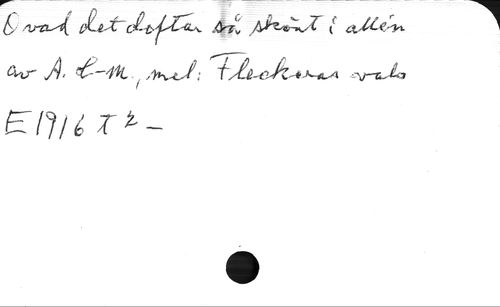 O vad det doftar så skönt i allén
av A. L-M., mel: Fleckeras vals
E 1916 T 2 -